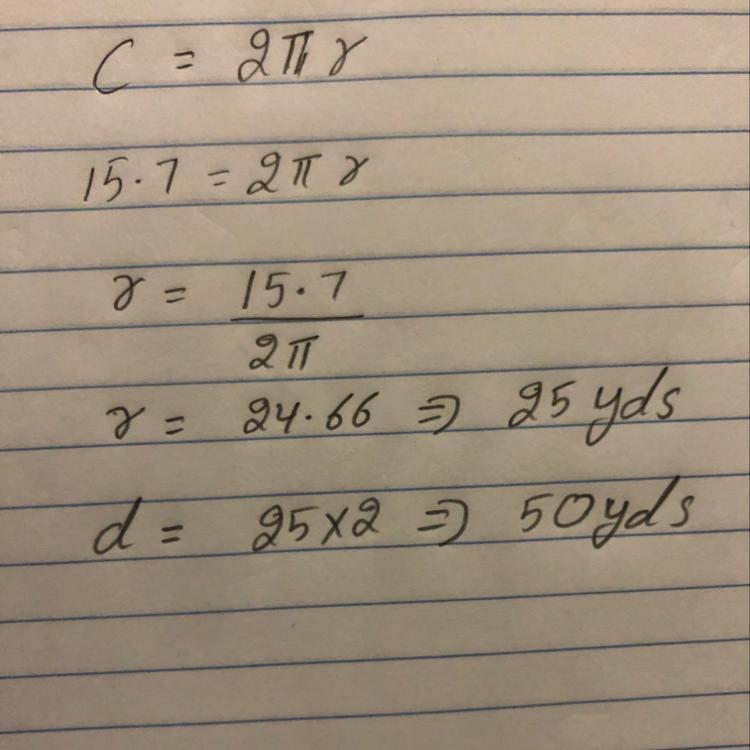 C = 2πr
15.7 = 2πr
r = 15.7
2π
r = 24.66 ⇒ 25 yds
d = 25×2 ⇒ 50yds